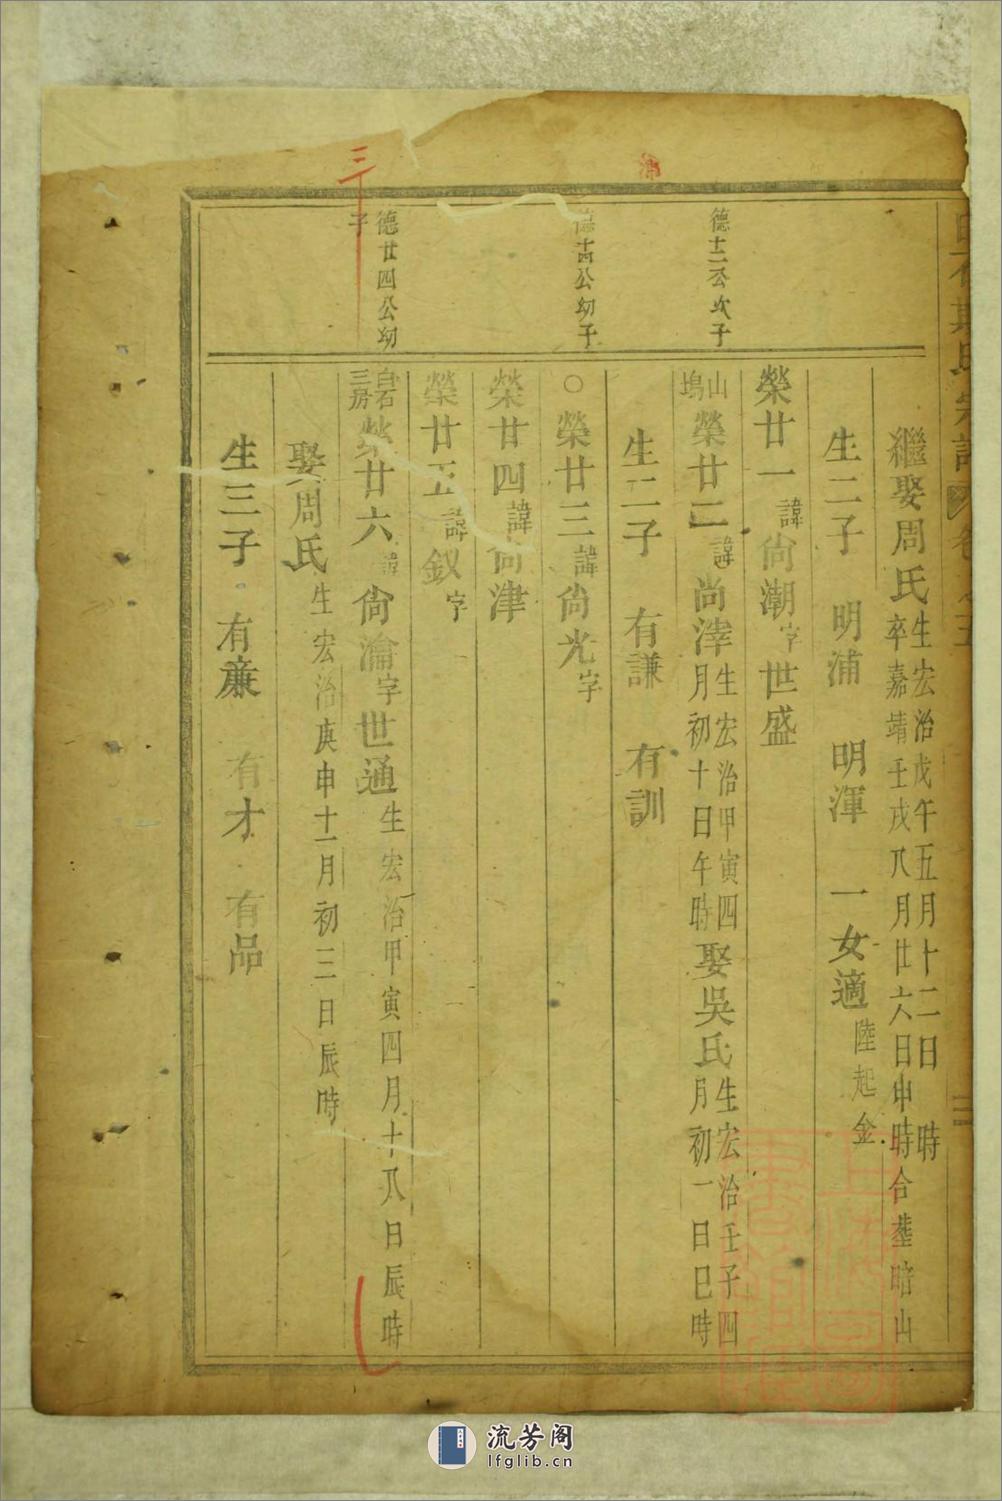 繼娶周氏生宏治戊午五月十二日 時
卒嘉靖壬戌八月廿六日申時合塟暗山
生二子 明浦 明渾 一女適陸起金
德十二公次子
榮廿一諱尙潮字世盛
山塢榮廿二諱尚滓生宏治甲寅四
月初十日午時娶吳氏生宏治壬子四
月初一日巳時
生二子 有謙 有訓
德十四公幼子
○榮廿三諱尙光字
榮廿四諱尙津
榮廿五諱釵字
德廿四公幼子
白石三房榮廿六諱尙瀹字世通生宏治甲寅四月十八日辰時
娶周氏生宏治庚申十一月初三日辰時
生三子 有亷 有才 有品
流芳阁
lfglib.cn